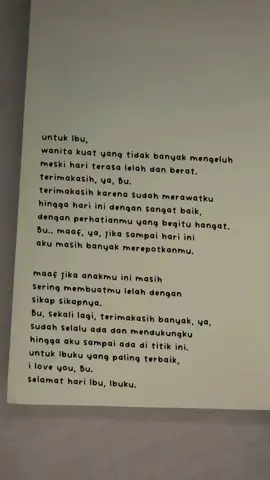 untuk Ibu,
wanita kuat yang tidak banyak mengeluh
meski hari terasa lelah dan berat.
terimakasih, ya, Bu.
terimakasih karena sudah merawatku
hingga hari ini dengan sangat baik,
dengan perhatianmu yang begitu hangat.
Bu.. maaf, ya, jika sampai hari ini
aku masih banyak merepotkanmu.
maaf jika anakmu ini masih
sering membuatmu lelah dengan
sikap sikapnya.
Bu, sekali lagi, terimakasih banyak, ya,
sudah selalu ada dan mendukungku
hingga aku sampai ada di titik ini.
untuk Ibuku yang paling terbaik,
i love you, Bu.
selamat hari Ibu, Ibuku.